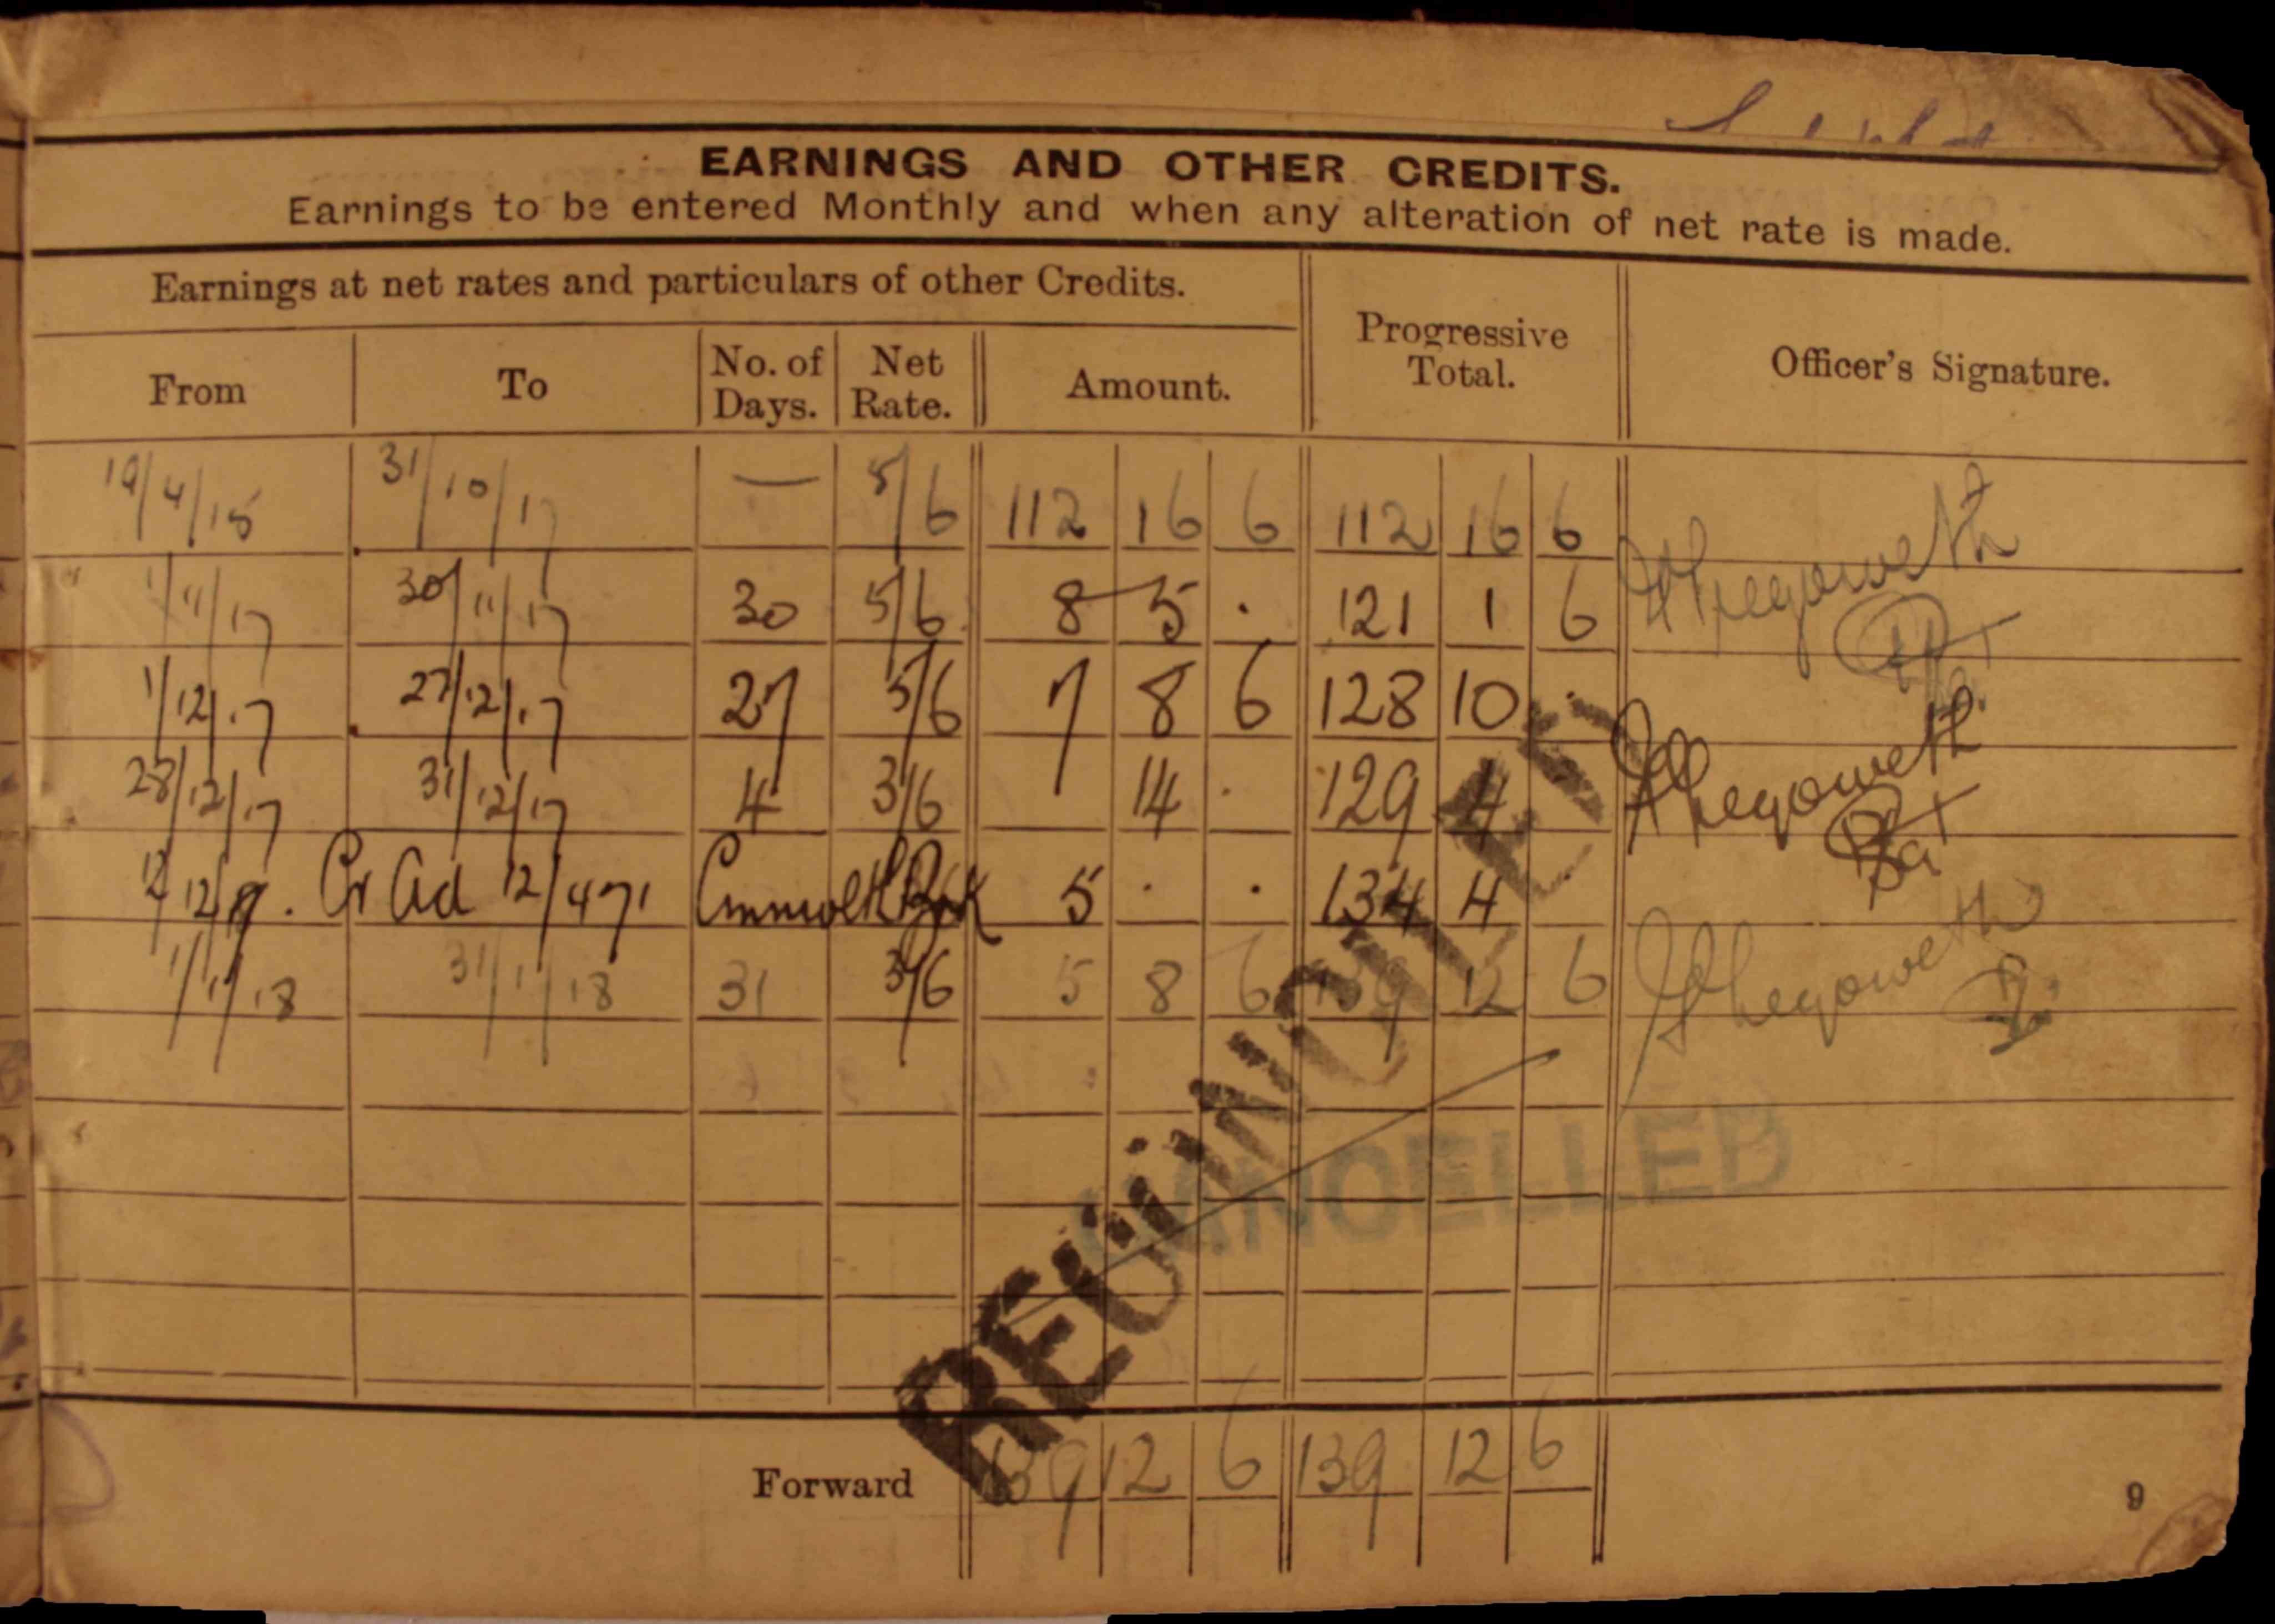 EARNINGS AND OTHER CREDITS.
Earnings to be entered Monthly and when any alteration of net rate is made.
Earnings at net rates and particulars of other Credits.
Progressive Total.
Officer's Signature.
From To No. of Days. Net Rate. Amount.
19/4/15 31/10/17 — 5/6 112 16 6 112 16 6
1/11/17 30/11/17 30 5/6 8 5 . 121 1 6
1/12/17 27/12/17 27 5/6 7 8 6 128 10 .
28/12/17 31/12/17 4 3/6 14 . 129 4
12/12/17. Cr Ad 12/471 Cmmwlth Bk 5 . . 134 4 .
1/1/18 31/1/18 31 3/6 5 8 6 139 12 6
RECONCILED
CANCELLED
Forward 139 12 6 139 12 6
9